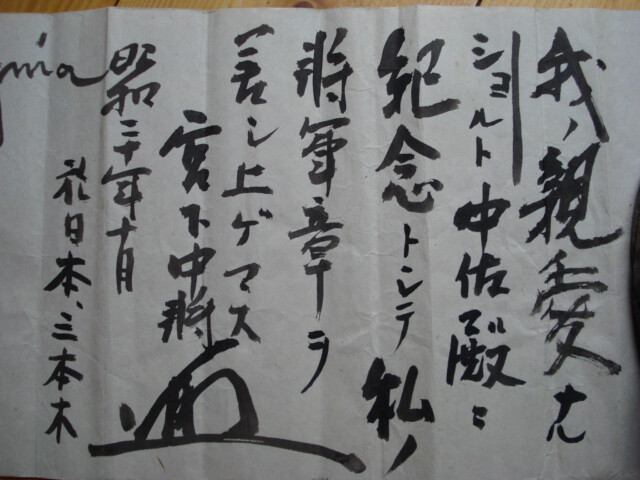 我ノ親愛ナル
ショルト中佐殿ニ
紀念トシテ私ノ
将軍章ヲ
差シ上ゲマス
宮下中将
昭和二十年十月
於日本、三本木